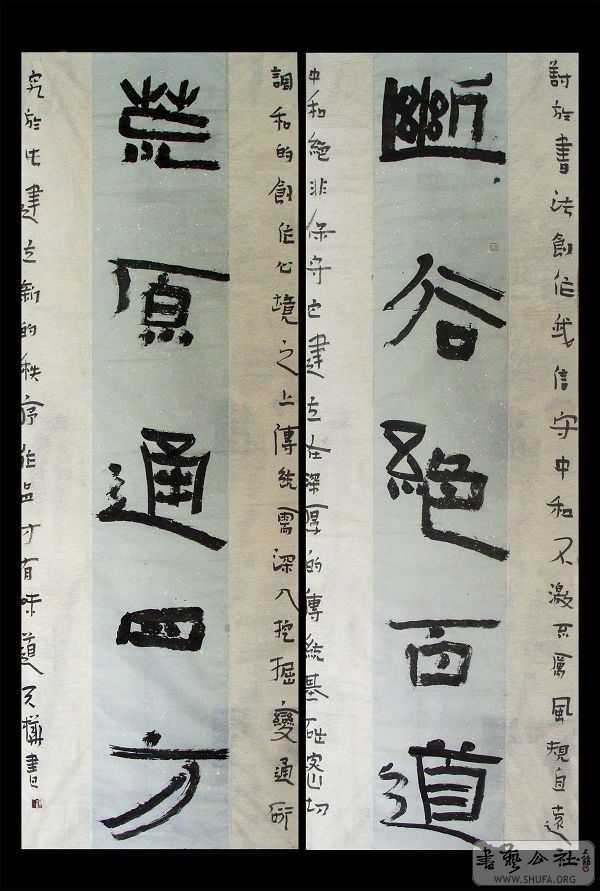 討於書法創作我信守中和不激不厲風規自遠
斷谷絕百道
中和絕非保守它建立在深厚的傳統基礎密切
調和的創作心境之上傳統需深入挖掘變通研
荒原通四方
究於中建立新的秩序作品才有味道 書
書藝公社
WWW.SHUFA.ORG